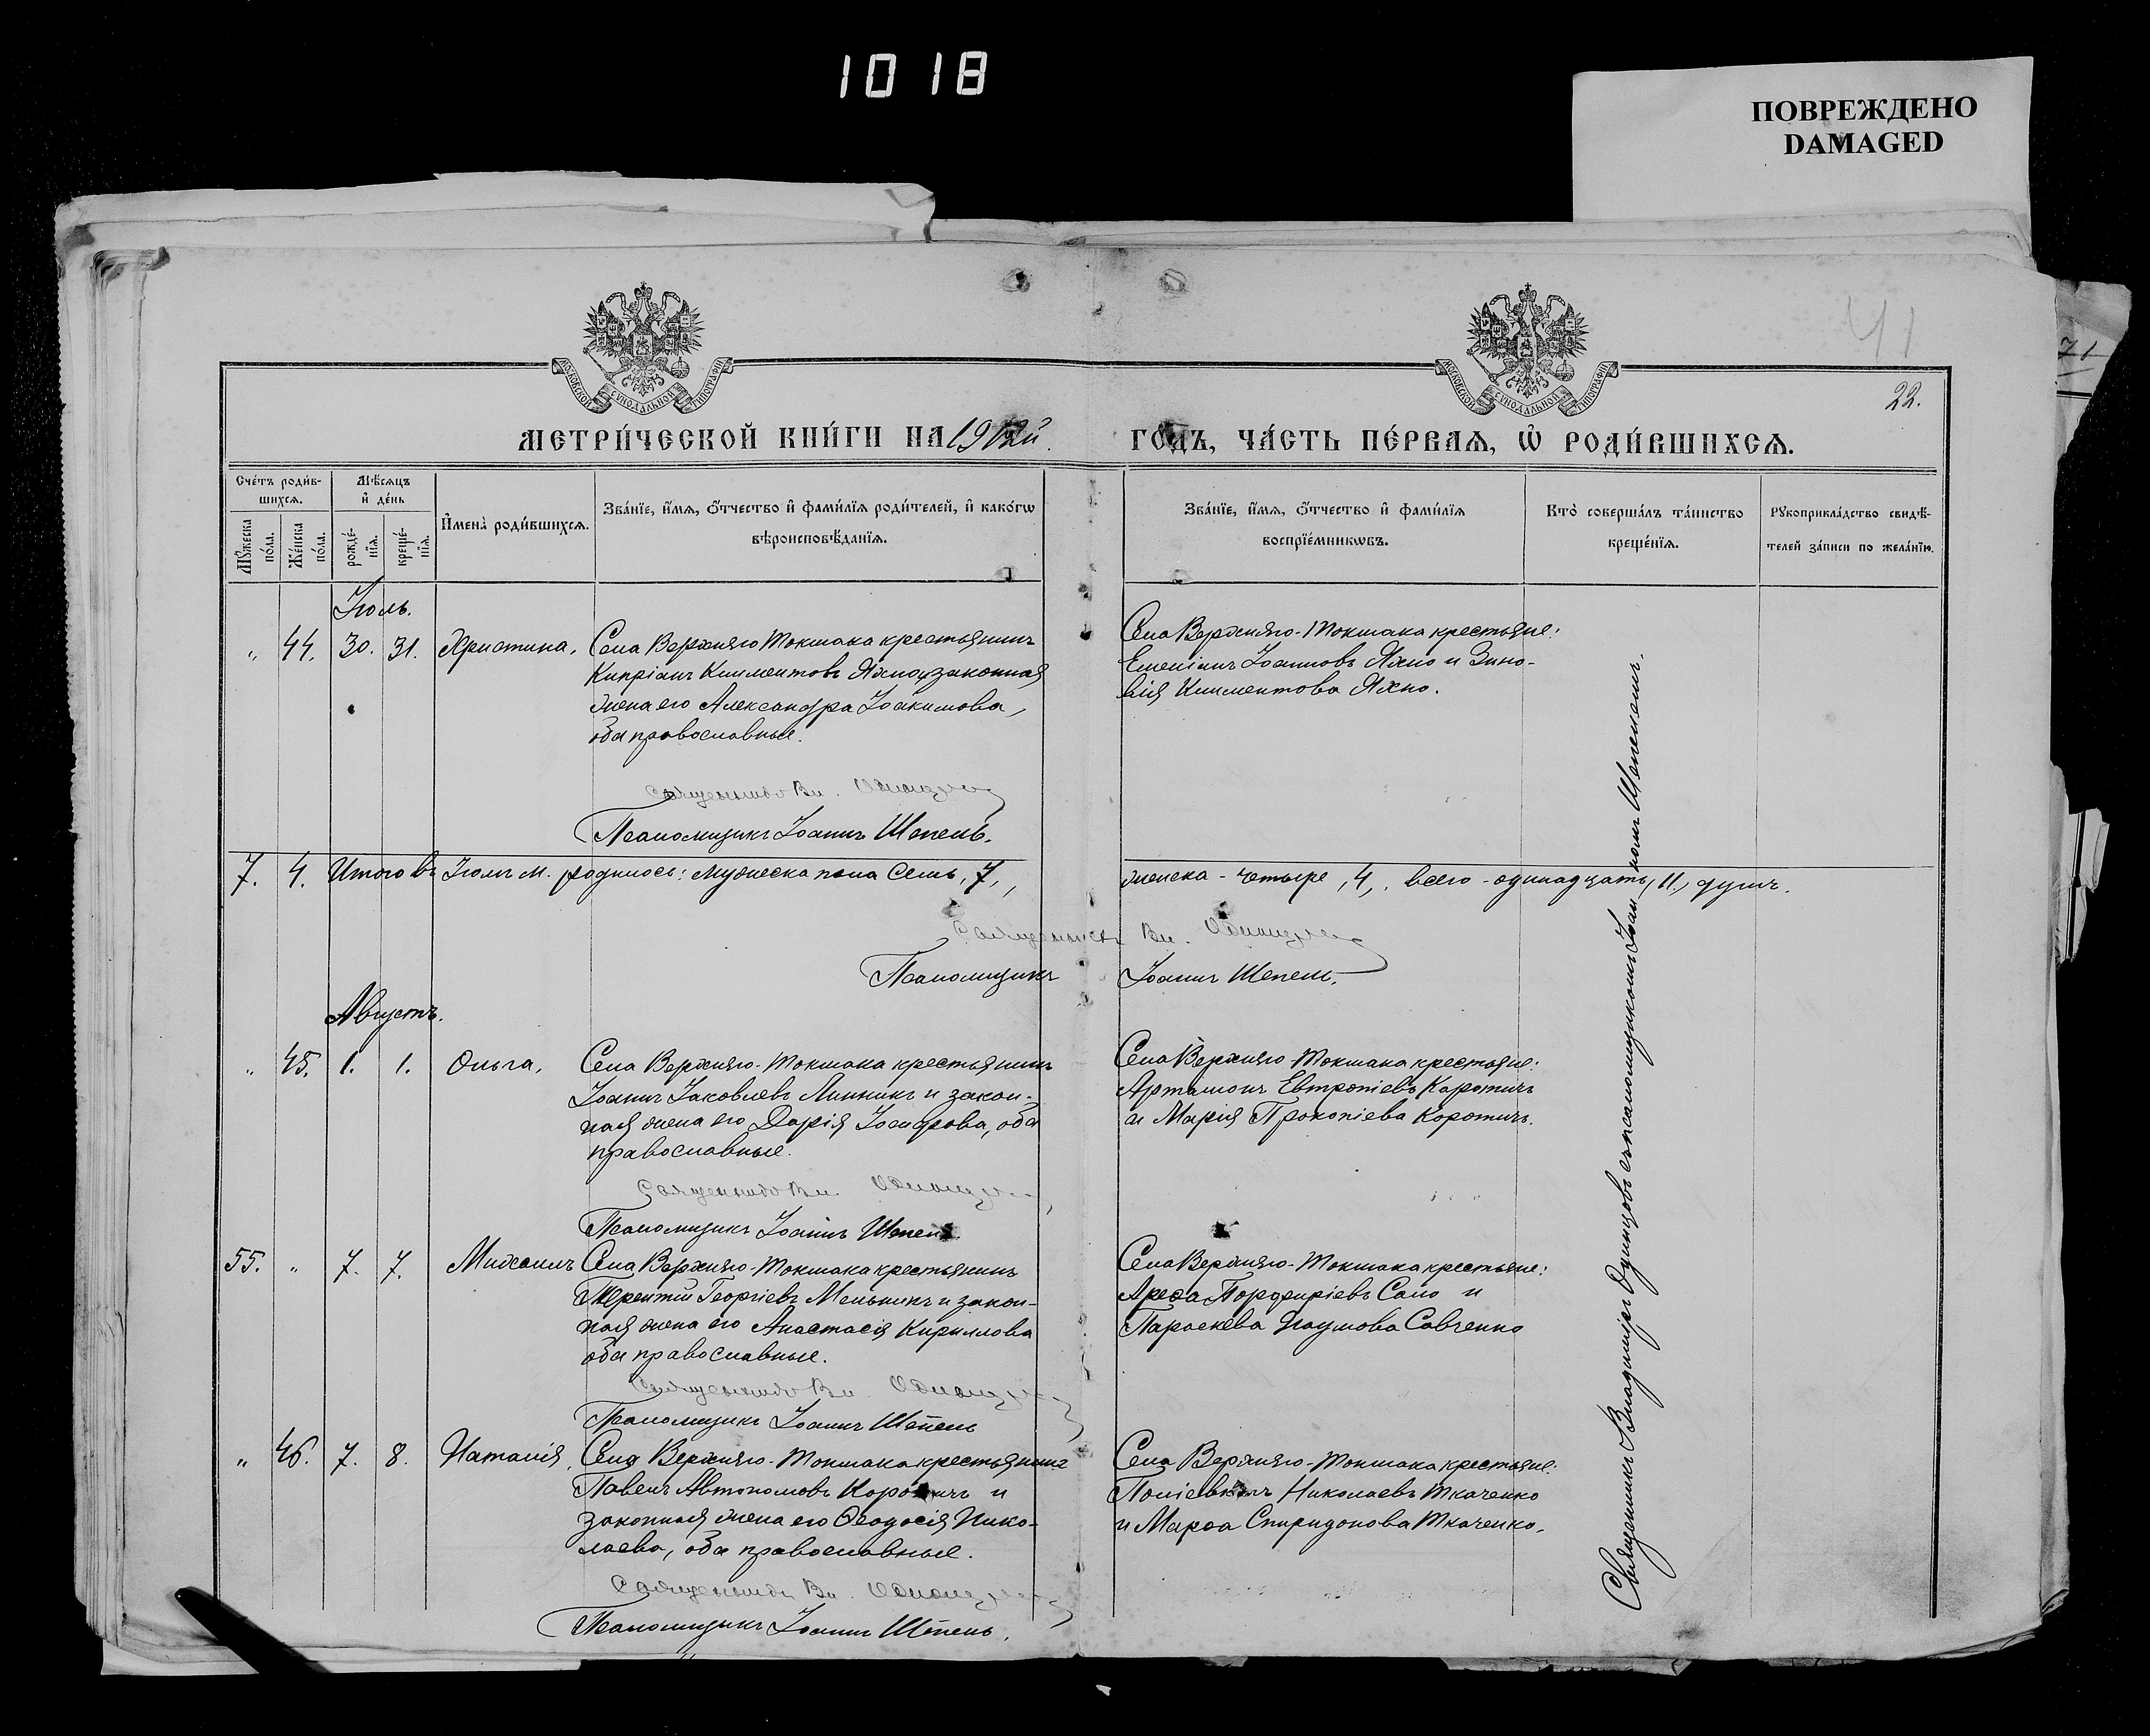 1018
ПОВРЕЖДЕНО
DAMAGED
41
71
22.
МОСКОВСКОЙ СѴНОДАЛЬНОЙ ТИПОГРАФІИ
МОСКОВСКОЙ СѴНОДАЛЬНОЙ ТИПОГРАФІИ
МЕТРИ́ЧЕСКОЙ КНИ́ГИ НА 1912й ГО́ДЪ, ЧА́СТЬ ПЕ́РВАѦ, Ѡ҆ РОДИ́ВШИХСѦ.
Сче́тъ роди́в-
шихсѧ.
Мѣ́сѧцъ
и҆ де́нь
Мꙋ́жеска
по́ла.
Же́нска
по́ла.
рожде́-
нїѧ.
креще́-
нїѧ.
И҆мена̀ роди́вшихсѧ.
Зва́нїе, и҆́мѧ, ѻ҆́тчество и҆ фами́лїѧ роди́телей, и҆ како́гѡ
вѣроисповѣ́данїѧ.
Зва́нїе, и҆́мѧ, ѻ҆́тчество и҆ фами́лїѧ
воспрїе́мникѡвъ.
Кто̀ соверша́лъ та́инство
креще́нїѧ.
Рꙋкоприкла́дство свидѣ́-
телей за́писи по жела́нїю.
Іюль.
„ 44. 30. 31. Христина,
Села Верхняго Токмака крестьянинъ
Кипріанъ Климентовъ Яхно и законная
жена его Александра Іоакимова,
оба православные.
Священникъ Вл. Одинцовъ
Псаломщикъ Іоаннъ Шепель.
Села Верхняго-Токмака крестьяне:
Емеліанъ Іоанновъ Яхно и Зино-
вія Климентова Яхно.
7. 4. Итого въ Іюлѣ м. родилось: мужеска пола семь, 7,, женска - четыре, 4,. всего - одинадцать, 11, душъ.
Священникъ Вл. Одинцовъ
Псаломщикъ Іоаннъ Шепель.
Августъ.
„ 45. 1. 1. Ольга,
Села Верхняго-Токмака крестьянинъ
Іоаннъ Іаковлевъ Линникъ и закон-
ная жена его Дарія, оба
православные.
Священникъ Вл. Одинцовъ
Псаломщикъ Іоаннъ Шепель.
Села Верхняго-Токмака крестьяне:
Артамонъ Евтропіевъ Коротичъ
и Марія Прокопіева Коротичъ.
55. „ 7. 7. Михаилъ
Села Верхняго-Токмака крестьянинъ
Терентій Георгіевъ Мельникъ и закон-
ная жена его Анастасія Кириллова
оба православные.
Священникъ Вл. Одинцовъ
Псаломщикъ Іоаннъ Шепель
Села Верхняго-Токмака крестьяне:
Арефа Порфиріевъ Сало и
Параскева Наумова Савченко
„ 46. 7. 8. Наталія,
Села Верхняго-Токмака крестьянинъ
Павелъ Автономовъ Коротичъ и
законная жена его Ѳеодосія Нико-
лаева, оба православные.
Священникъ Вл. Одинцовъ
Псаломщикъ Іоаннъ Шепель.
Села Верхняго-Токмака крестьяне:
Николаевъ Ткаченко
и Марѳа Спиридонова Ткаченко.
Священникъ Владиміръ Одинцовъ съ псаломщикомъ Іоанномъ Шепелемъ.